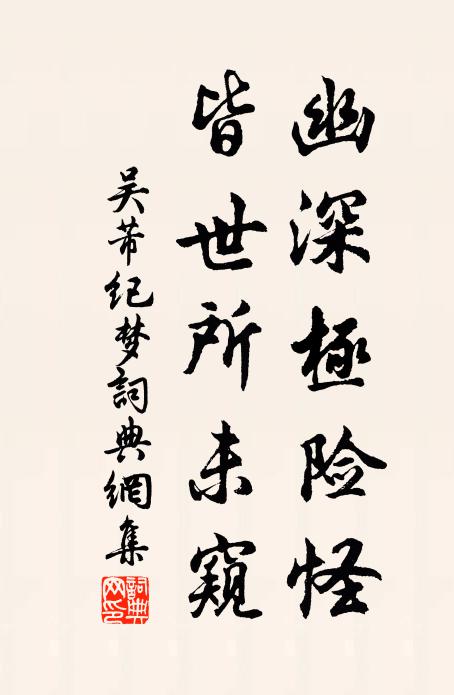 幽深極险怪
皆世所未窺
吴芾纪梦詞典網集
詞典網印